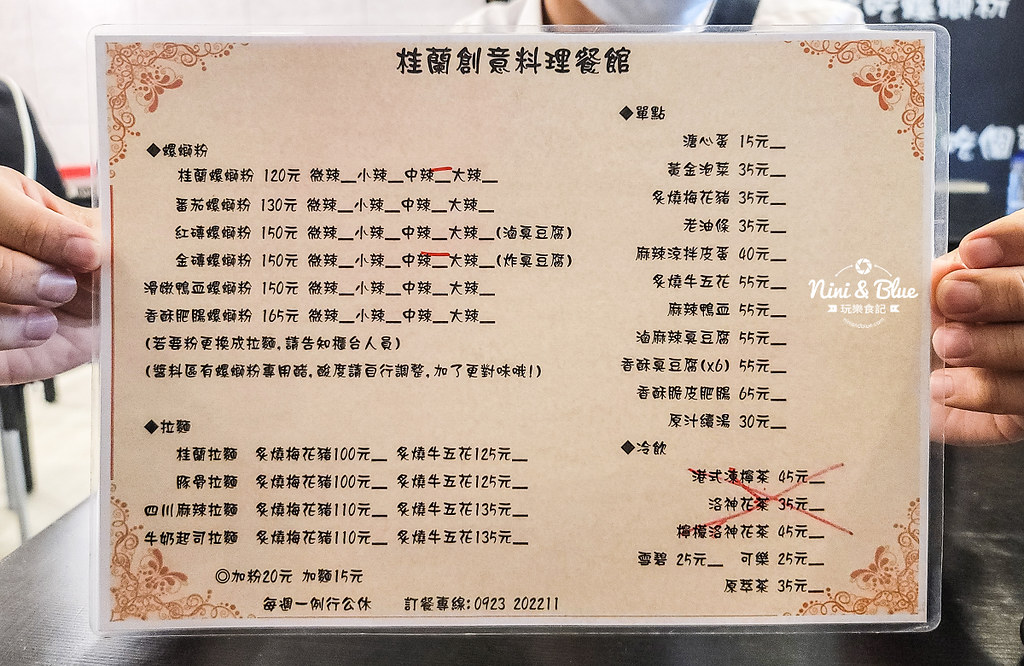 桂蘭創意料理餐館
◆螺螄粉
桂蘭螺螄粉 120元 微辣__小辣__中辣__大辣__
番茄螺螄粉 130元 微辣__小辣__中辣__大辣__
紅磚螺螄粉 150元 微辣__小辣__中辣__大辣__(滷臭豆腐)
金磚螺螄粉 150元 微辣__小辣__中辣__大辣__(炸臭豆腐)
滑嫩鴨血螺螄粉 150元 微辣__小辣__中辣__大辣__
香酥肥腸螺螄粉 165元 微辣__小辣__中辣__大辣__
(若要粉更換成拉麵,請告知櫃台人員)
(醬料區有螺螄粉專用醋,酸度請自行調整,加了更對味哦!)
◆拉麵
桂蘭拉麵 炙燒梅花豬100元__ 炙燒牛五花125元__
豚骨拉麵 炙燒梅花豬100元__ 炙燒牛五花125元__
四川麻辣拉麵 炙燒梅花豬110元__ 炙燒牛五花135元__
牛奶起司拉麵 炙燒梅花豬110元__ 炙燒牛五花135元__
◎加粉20元 加麵15元
每週一例行公休 訂餐專線:0923 202211
◆單點
溏心蛋 15元__
黃金泡菜 35元__
炙燒梅花豬 35元__
老油條 35元__
麻辣涼拌皮蛋 40元__
炙燒牛五花 55元__
麻辣鴨血 55元__
滷麻辣臭豆腐 55元__
香酥臭豆腐(x6) 55元__
香酥脆皮肥腸 65元__
原汁續湯 30元__
◆冷飲
港式凍檸茶 45元__
洛神花茶 35元__
檸檬洛神花茶 45元__
雪碧 25元__ 可樂 25元__
原萃茶 35元__
Nini & Blue
玩樂食記